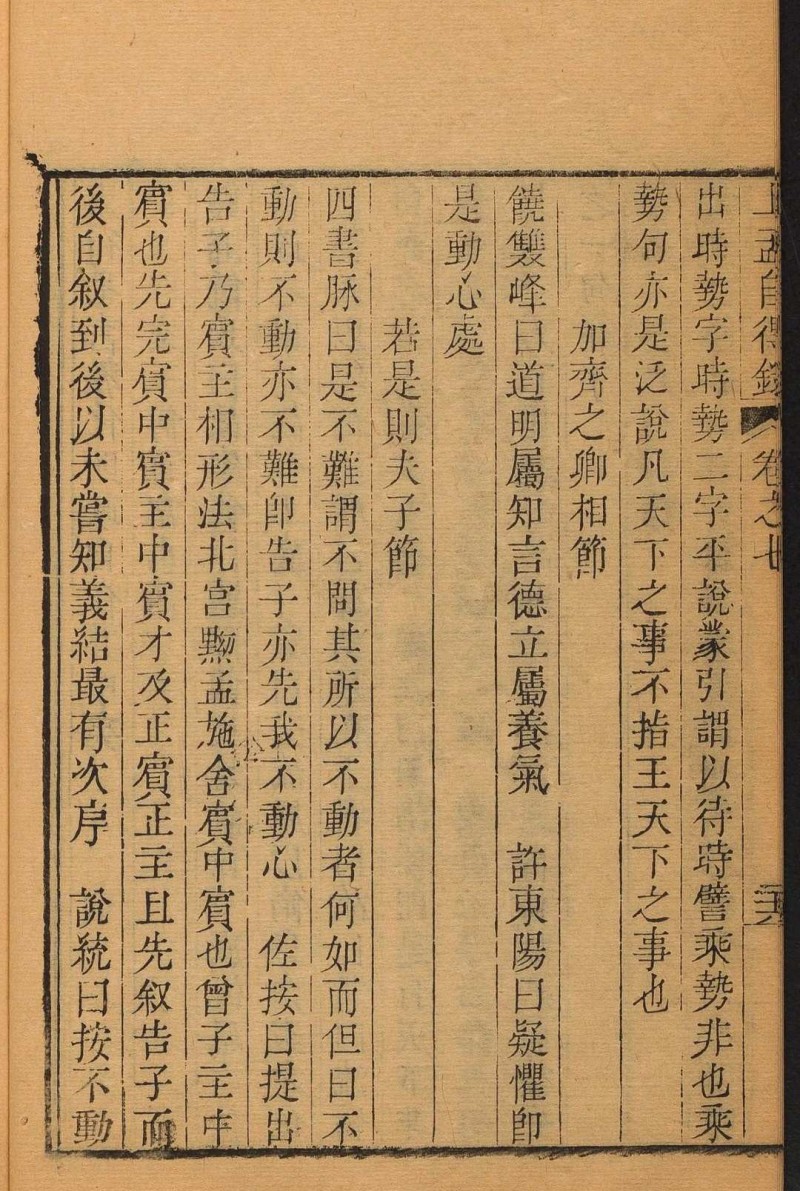 上孟自得錄 卷之七 二六
出時勢字時勢二字平說蒙引謂以待時譬乘勢非也乘
勢句亦是泛說凡天下之事不指王天下之事也
加齊之卿相節
饒雙峰曰道明屬知言德立屬養氣 許東陽曰疑懼卽
是動心處
若是則夫子節
四書脉曰是不難謂不問其所以不動者何如而但曰不
動則不動亦不難卽告子亦先我不動心 佐按曰提出
告子乃賓主相形法北宮黝孟施舍賓中賓也曾子主中
賓也先完賓中賓主中賓才及正賓正主且先叙告子而
後自叙到後以未嘗知義結最有次序 說統曰按不動